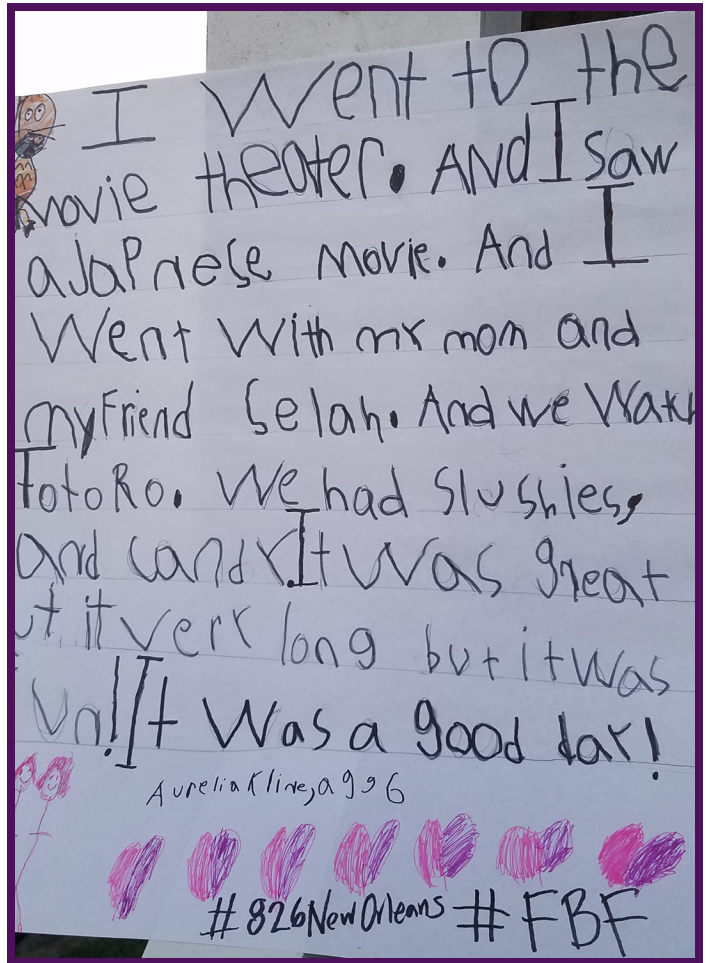 I Went to the
movie theater. ANd I saw
a JaPnese movie. And I
Went With my mom and
my Friend Selah. And we Wak
TotoRo. We had Slushies,
and candy. It Was great
ut it very long but it Was
un! It Was a good day!
Aurelia Kline, age 6
#826NewOrleans #FBF